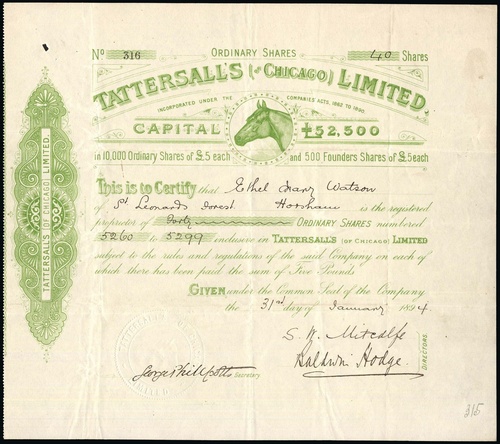 ORDINARY SHARES
No 316
40 Shares
TATTERSALL'S (OF CHICAGO) LIMITED
INCORPORATED UNDER THE COMPANIES ACTS, 1862 TO 1890.
CAPITAL £52,500
in 10,000 Ordinary Shares of £5 each and 500 Founders Shares of £5 each
This is to Certify that Ethel Mary Watson
of St Leonards Forest Horsham is the registered
proprietor of Forty ORDINARY SHARES numbered
5260 to 5299 inclusive in TATTERSALL'S (OF CHICAGO) LIMITED
subject to the rules and regulations of the said Company on each of
which there has been paid the sum of Five Pounds
GIVEN under the Common Seal of the Company
the 31st day of January 1894
S. W. Metcalfe
Baldwin Hodge.
DIRECTORS.
George Phillpotts Secretary
TATTERSALL'S (OF CHICAGO) LIMITED.
315